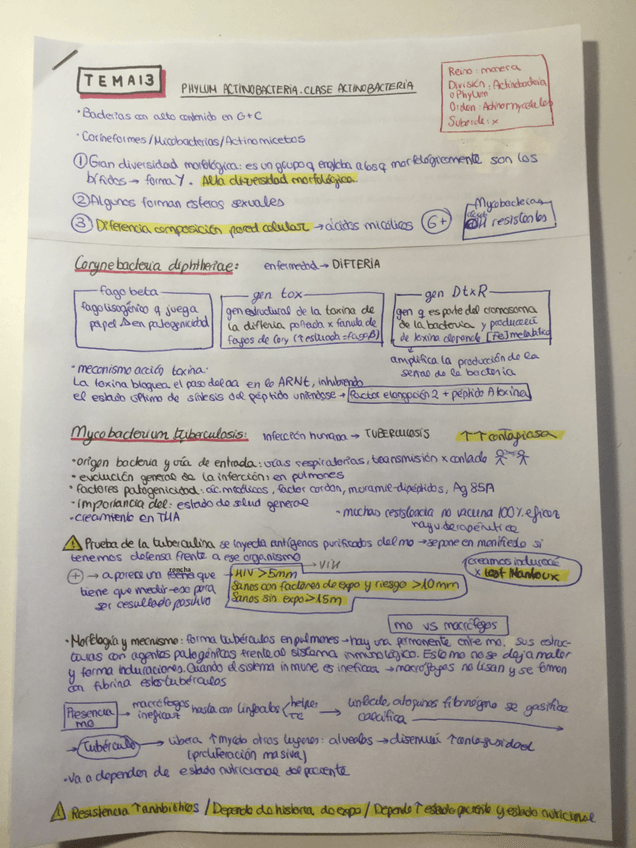 TEMA 13
PHYLUM ACTINOBACTERIA. CLASE ACTINOBACTERIA
Reino: monera
División: Actinobacteria
o Phylum
Orden: Actinomycetales
Suborde: x
· Bacterias con alto contenido en G+C
· Corineformes/Micobacterias/Actinomicetos
① Gran diversidad morfológica: es un grupo q engloba a los q morfológicamente son los
bífidos → forma Y. Alta diversidad morfológica.
② Algunos forman esporas sexuales
③ Diferencia composición pared celular → ácidos micólicos G+
Mycobacterias
resistentes
Corynebacteria diphtheriae: enfermedad → DIFTERIA
fago beta
fago lisogénico q juega
papel en patogenicidad
gen tox
gen estructural de la toxina de
la difteria portada x familia de
fagos de Cory (↑ estudiada = fago β)
gen DtxR
gen q es parte del cromosoma
de la bacteria y producción
de toxina depende [Fe] metabólico
amplifica la producción de la
señal de la bacteria
· mecanismo acción toxina:
La toxina bloquea el paso del aa en lo ARNt, inhibiendo
el estado óptimo de síntesis del péptido uniéndose → factor elongación 2 + péptido A toxina
Mycobacterium tuberculosis: infección humana → TUBERCULOSIS ↑↑ contagiosa
· origen bacteria y vía de entrada: vías respiratorias, transmisión x contacto
· evolución general de la infección: en pulmones
· factores patogenicidad: ác. micólicos, factor cordón, muramil-dipéptidos, Ag 85A
· importancia del: estado de salud general
· crecimiento en THA
· muchas resistencia no vacuna 100% eficaz
hay uda terapéutica
Prueba de la tuberculina se inyecta antígenos purificados del mo → se pone en manifiesto si
tenemos defensa frente a ese organismo
+ → aparece una roncha que
tiene que medir eso para
ser resultado positivo
→ VIH
HIV > 5mm
Sanos con factores de expo y riesgo > 10mm
Sanos sin expo > 15m
creamos induración
x test Mantoux
mo vs macrófagos
· Morfología y mecnismo: forma tubérculos en pulmones → hay una permanente entre mo, sus estruc-
turas con agentes patogénicos frente al sistema inmunológico. Este mo no se deja matar
y forma induraciones. Cuando el sistema inmune es ineficaz → macrófagos no lisan y se forman
con fibrina estos tubérculos
Presencia
mo
→ macrófagos
ineficaz
→ hasta con linfocitos
helper
TC
→ linfocito, algunos fibrinógeno se gasifica
calcifica
→ Tubérculo → libera ↑ myco otros lugares: alveolos → disemina ↑ contagiosidad
(proliferación masiva)
· Va a depender de estado nutricional del paciente
Resistencia ↑ antibióticos / Depende de historia de expo / Depende ↑ estado paciente y estado nutricional